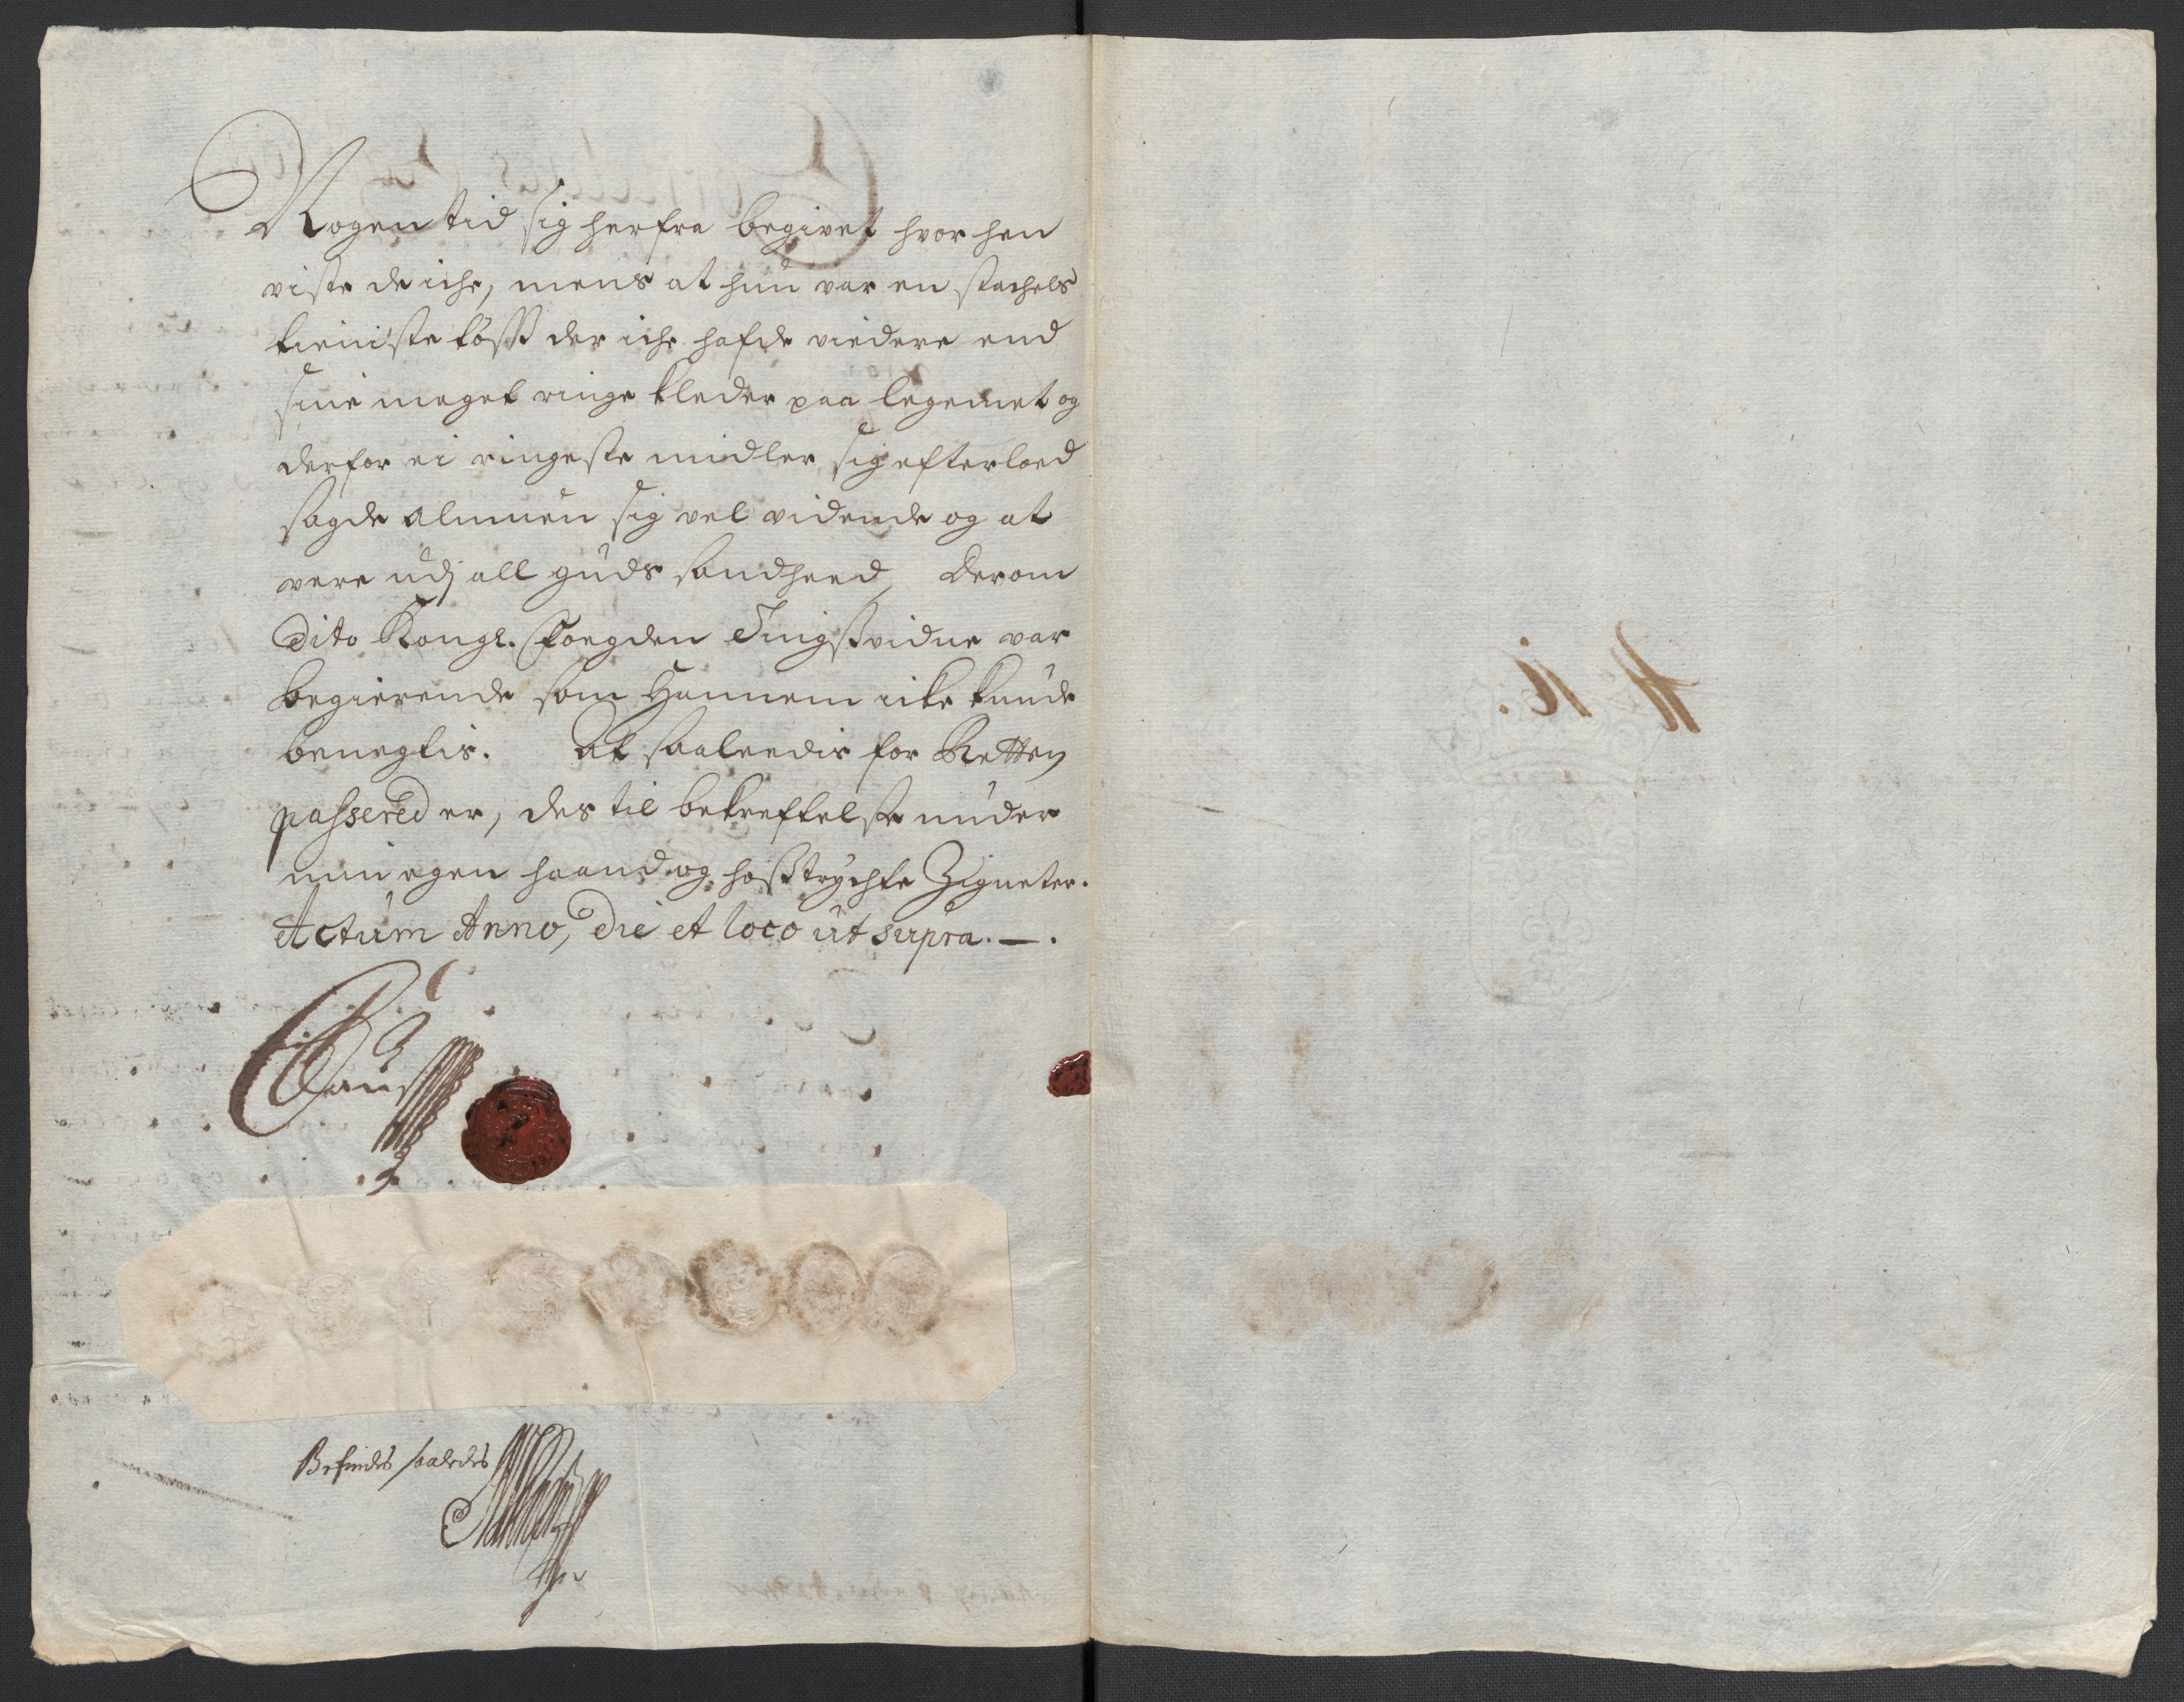 Nogen tid sig herfra begivet hvor hen
viste de iche, mens at hun var en stachels
tieniste tøss der iche hafde viedere end
sine meget ringe kleder paa legemet og
derfor ei ringeste midler sig efterloed
sagde Almuen sig vel vidende og at
vere udj all guds sandheed, derom
Dito Kongl. Foegden Tingsvidne var
begierende som Hannem icke kunde
benegtis. At saaleedis for Retten
passered er, des til bekreftelse under
min egen haand og hosstrychte Zigneter.
Actum Anno, Die et loco ut supra. —.
Befindes saaledes